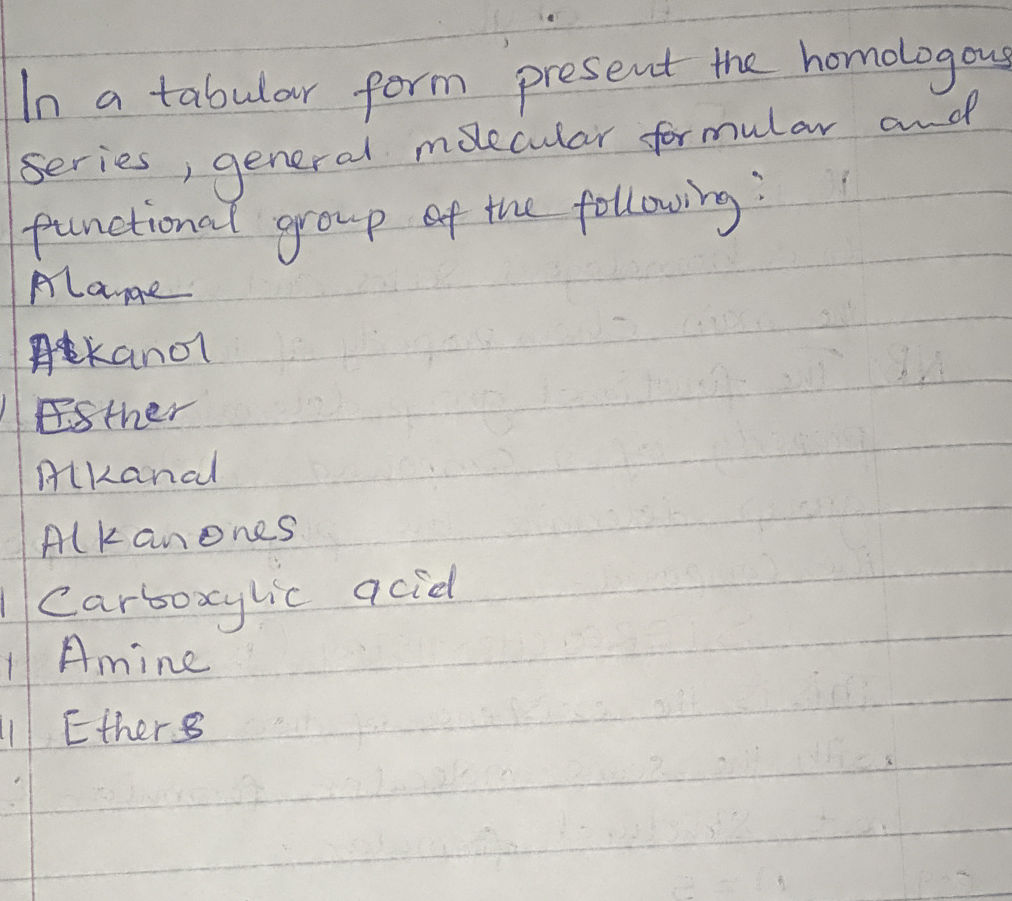 In a tabular form present the homologous
series, general molecular formular and
functional group of the following:
Alkanol
Esther
Alkanal
Alkanones
Carboxylic acid
Amine
Ethers